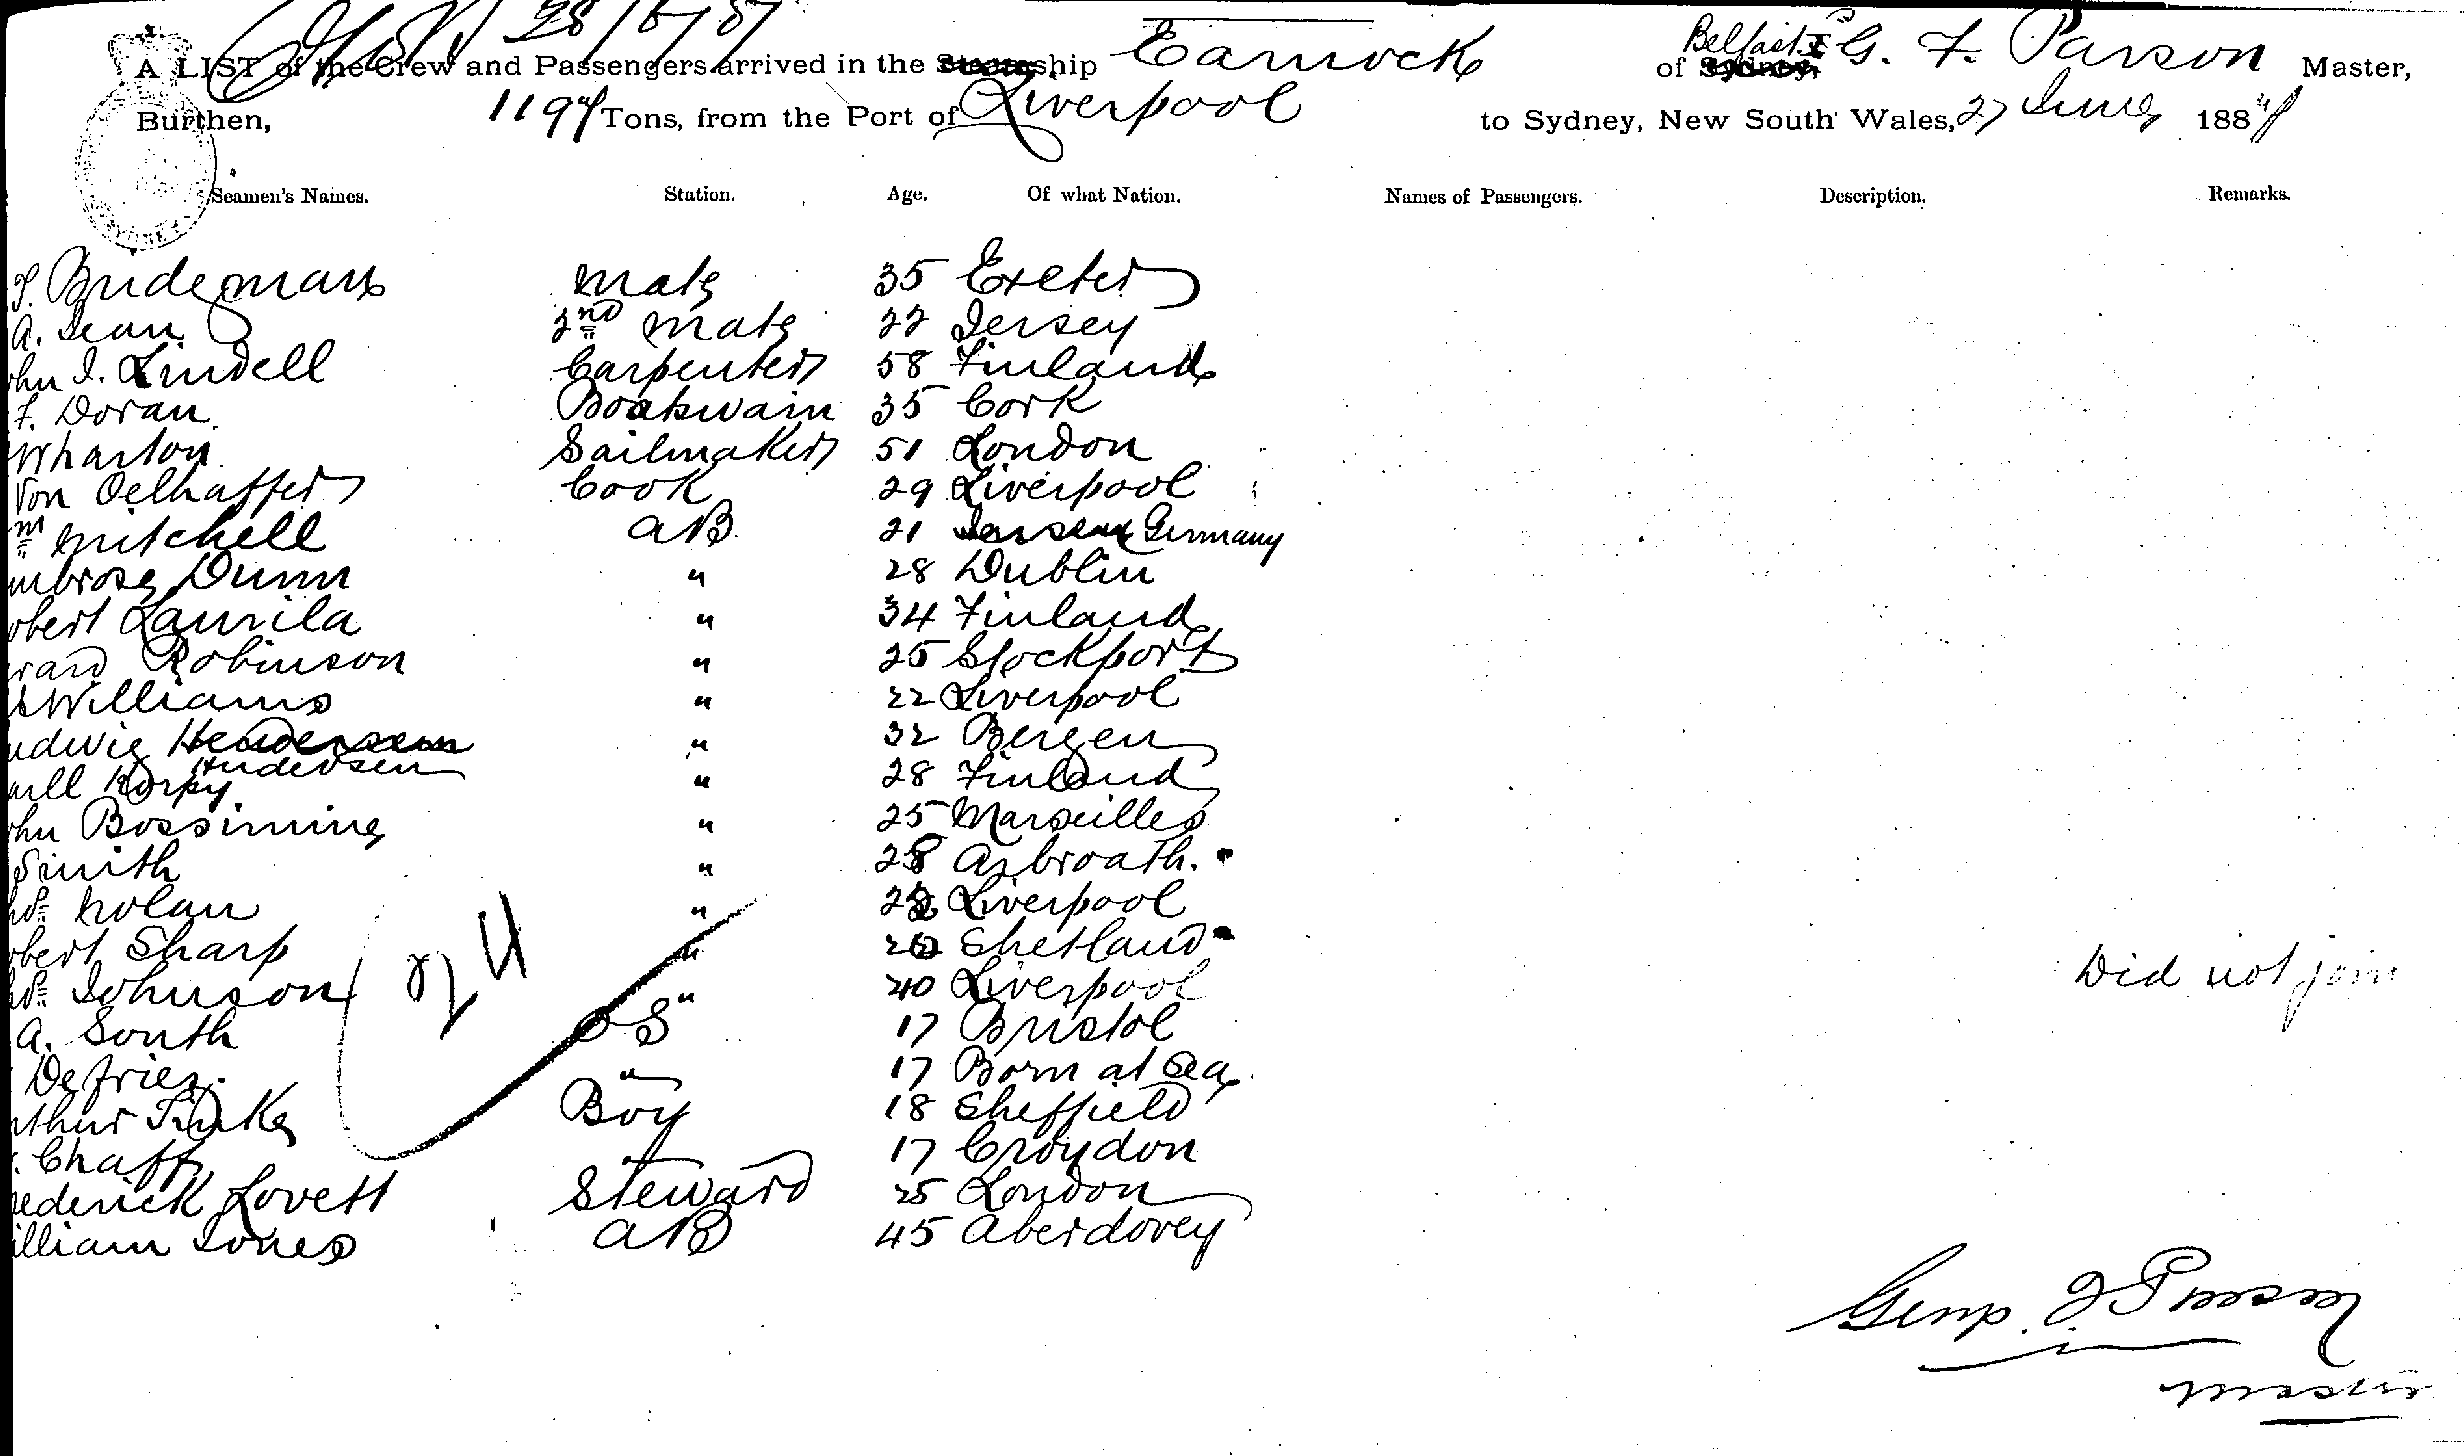 28/6/87
A LIST of the Crew and Passengers arrived in the ship Earnock of Belfast G. F. Parson Master,
Burthen, 1194 Tons, from the Port of Liverpool to Sydney, New South Wales, 27 June 188
Seamen's Names. Station. Age. Of what Nation. Names of Passengers. Description. Remarks.
Bridgman Mate 35 Exeter
A. Jean 2nd Mate 22 Jersey
ohn J. Lindell Carpenter 58 Finland
F. Doran Boatswain 35 Cork
Wharton Sailmaker 51 London
Von Oelhaffer Cook 29 Liverpool
m Mitchell AB 21 Germany
mbrose Dunn " 28 Dublin
obert Laurila " 34 Finland
ward Robinson " 25 Stockport
Williams " 22 Liverpool
udwig Hendersen Andersen " 32 Bergen
Korpy " 28 Finland
ohn Bossiming " 25 Marseilles
Smith " 28 Arbroath.
Nolan " 22 Liverpool
obert Sharp " 20 Shetland
Johnson " 40 Liverpool Did not join
A. South OS 17 Bristol
Defries " 17 Born at Sea
rthur Tinker Boy 18 Sheffield
Chaff " 17 Croydon
rederick Lovett Steward 25 London
illiam Jones AB 45 Aberdovey
24
Parson
Master